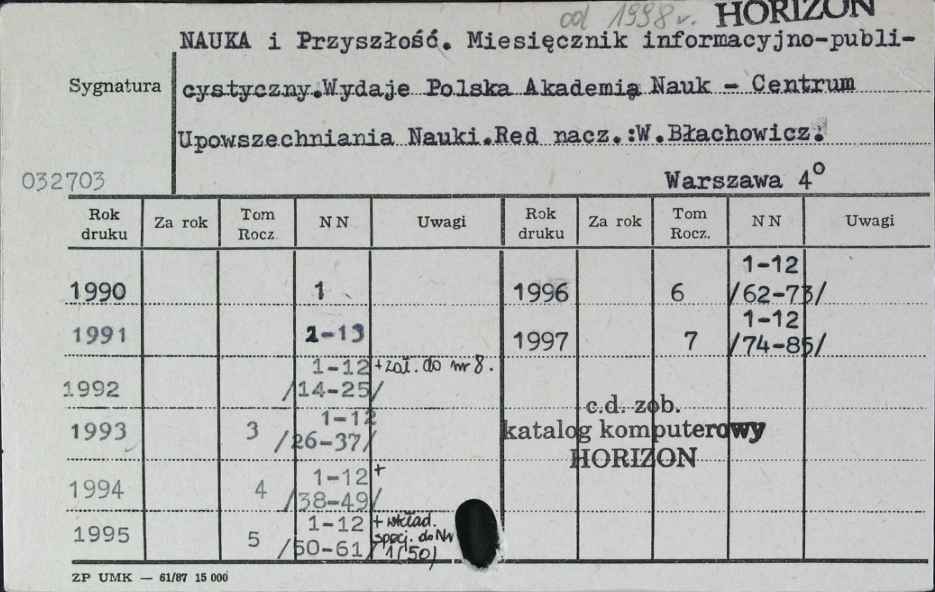 od 1998 r. HORIZON
NAUKA i Przyszłość. Miesięcznik informacyjno-publi-
Sygnatura
cystyczny.Wydaje Polska Akademią Nauk - Centrum
Upowszechniania Nauki.Red nacz.:W.Błachowicz.
032703
Warszawa 4°
Rok druku Za rok Tom Rocz. NN Uwagi Rok druku Za rok Tom Rocz. NN Uwagi
1990 1 1996 6 1-12 /62-73/
1991 2-13 1997 7 1-12 /74-85/
1992 1-12 /14-25/ +zał. do nr 8.
1993 3 1-12 /26-37/
c.d. zob.
katalog komputerowy
HORIZON
1994 4 1-12 /38-49/ +
1995 5 1-12 /50-61/ + wkład. specj. do Nr 1(50)
ZP UMK — 61/87 15 000